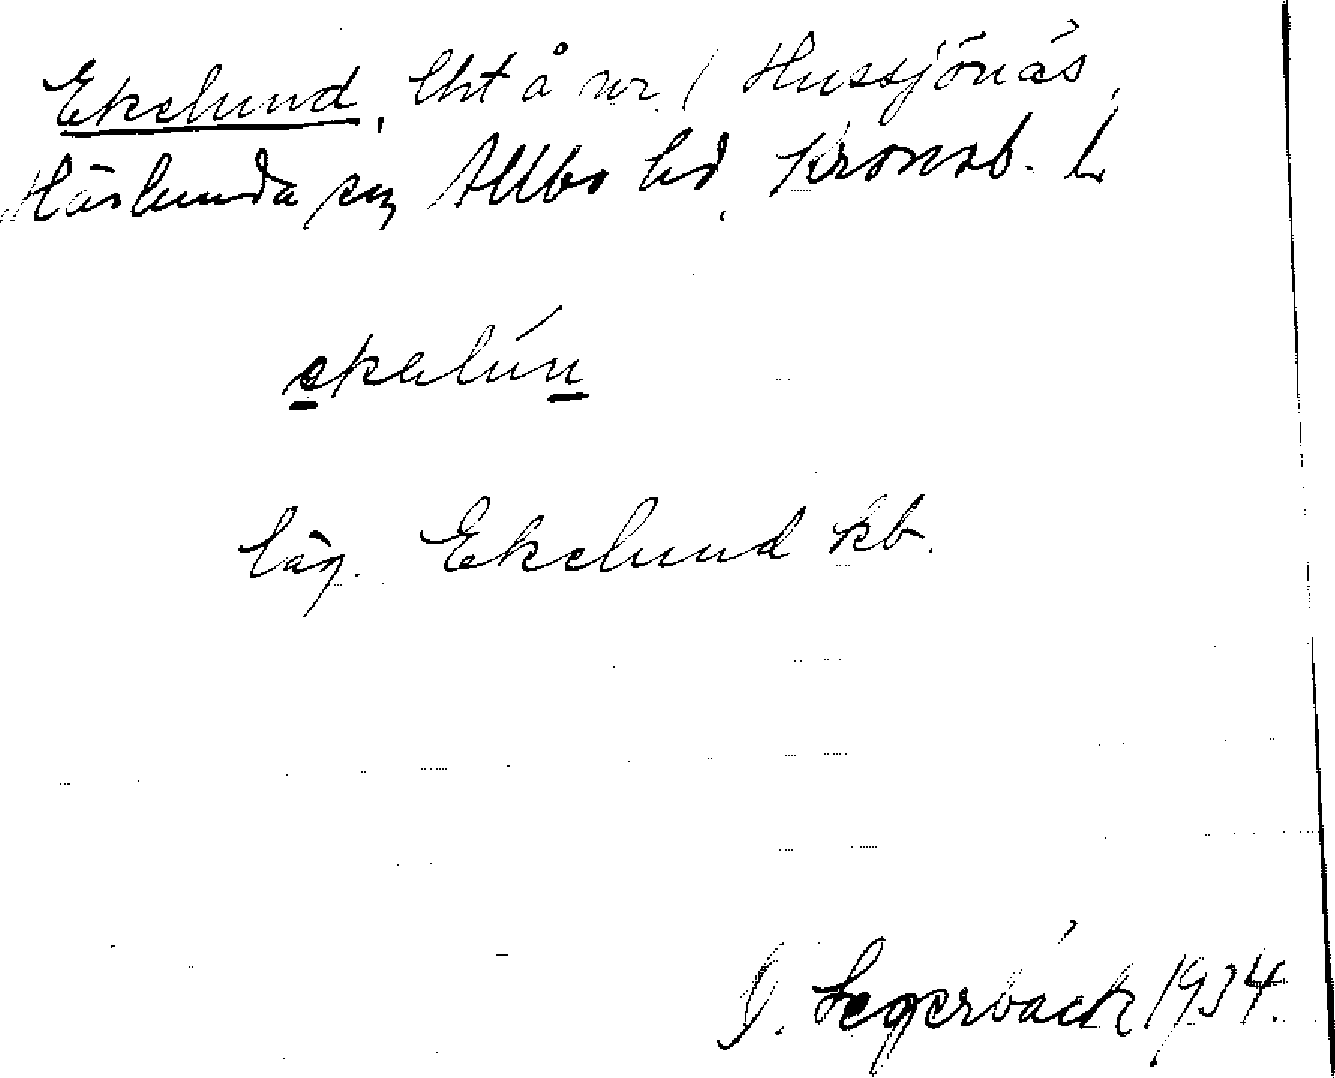 Ekelund, lht å nr 1 Hussjönäs,
Härlunda sn, Allbo hd, Kronob. L
ekalún
läg. Ekelund kb.
J. Segerbäck 1934.